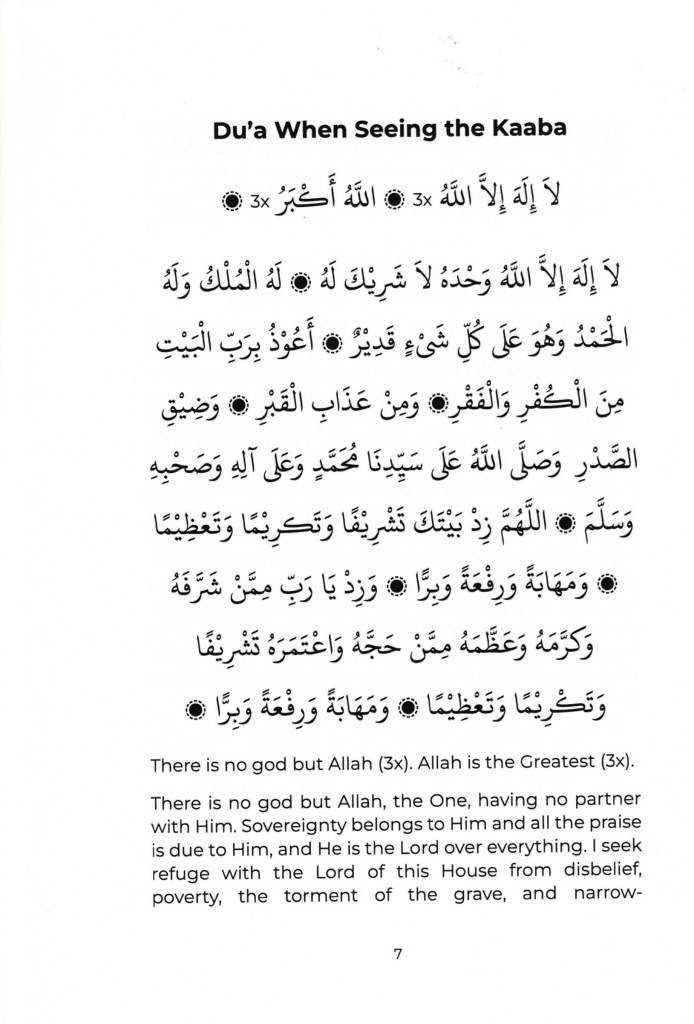 Du’a When Seeing the Kaaba
لاَ إِلَهَ إِلاَّ اللَّهُ 3x ۞ اللَّهُ أَكْبَرُ 3x ۞
لاَ إِلَهَ إِلاَّ اللَّهُ وَحْدَهُ لاَ شَرِيْكَ لَهُ ۞ لَهُ الْمُلْكُ وَلَهُ
الْحَمْدُ وَهُوَ عَلَى كُلِّ شَىْءٍ قَدِيْرٌ ۞ أَعُوْذُ بِرَبِّ الْبَيْتِ
مِنَ الْكُفْرِ وَالْفَقْرِ ۞ وَمِنْ عَذَابِ الْقَبْرِ ۞ وَضِيْقِ
الصَّدْرِ وَصَلَّى اللَّهُ عَلَى سَيِّدِنَا مُحَمَّدٍ وَعَلَى آلِهِ وَصَحْبِهِ
وَسَلَّمَ ۞ اللَّهُمَّ زِدْ بَيْتَكَ تَشْرِيْفًا وَتَكْرِيْمًا وَتَعْظِيْمًا
۞ وَمَهَابَةً وَرِفْعَةً وَبِرًّا ۞ وَزِدْ يَا رَبِّ مِمَّنْ شَرَّفَهُ
وَكَرَّمَهُ وَعَظَّمَهُ مِمَّنْ حَجَّهُ وَاعْتَمَرَهُ تَشْرِيْفًا
وَتَكْرِيْمًا وَتَعْظِيْمًا ۞ وَمَهَابَةً وَرِفْعَةً وَبِرًّا ۞
There is no god but Allah (3x). Allah is the Greatest (3x).
There is no god but Allah, the One, having no partner
with Him. Sovereignty belongs to Him and all the praise
is due to Him, and He is the Lord over everything. I seek
refuge with the Lord of this House from disbelief,
poverty, the torment of the grave, and narrow-
7